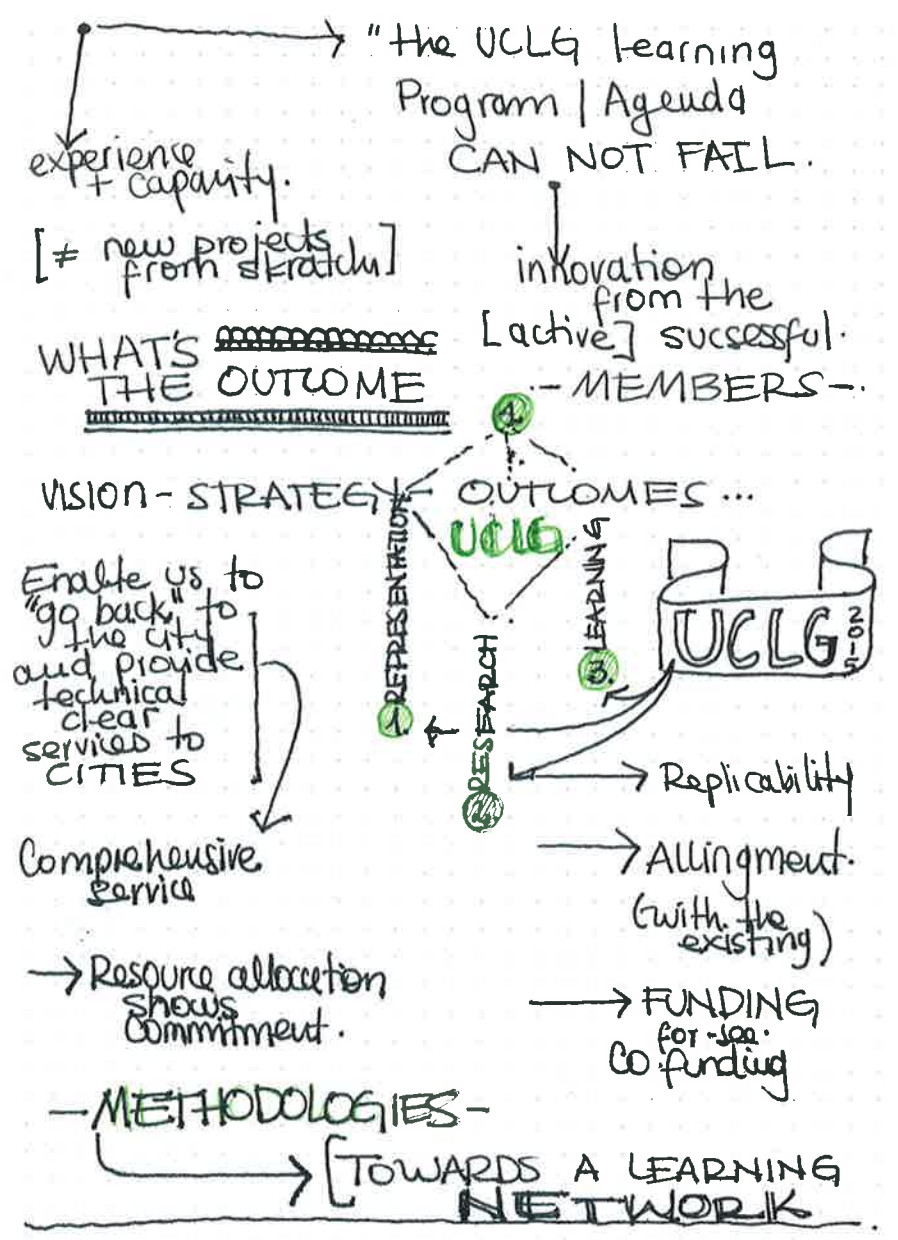 "the UCLG Learning
Program / Agenda
CAN NOT FAIL.
experience
+ capacity.
[≠ new projects
from skratch]
innovation
from the
[active] sucsessful.
-MEMBERS-
WHAT'S
THE OUTCOME
4
VISION - STRATEGY - OUTCOMES ...
UCLG
REPRESENTATION
1.
RESEARCH
2.
LEARNING
3.
UCLG 2015
Enable us to
"go back" to
the city
and provide
technical
clear
services to
CITIES
Comprehensive
service
→ Resource allocation
shows
commitment.
→ Replicability
→ Allingment.
(with the
existing)
→ FUNDING
for-see.
Co funding
- METHODOLOGIES -
[TOWARDS A LEARNING
NETWORK